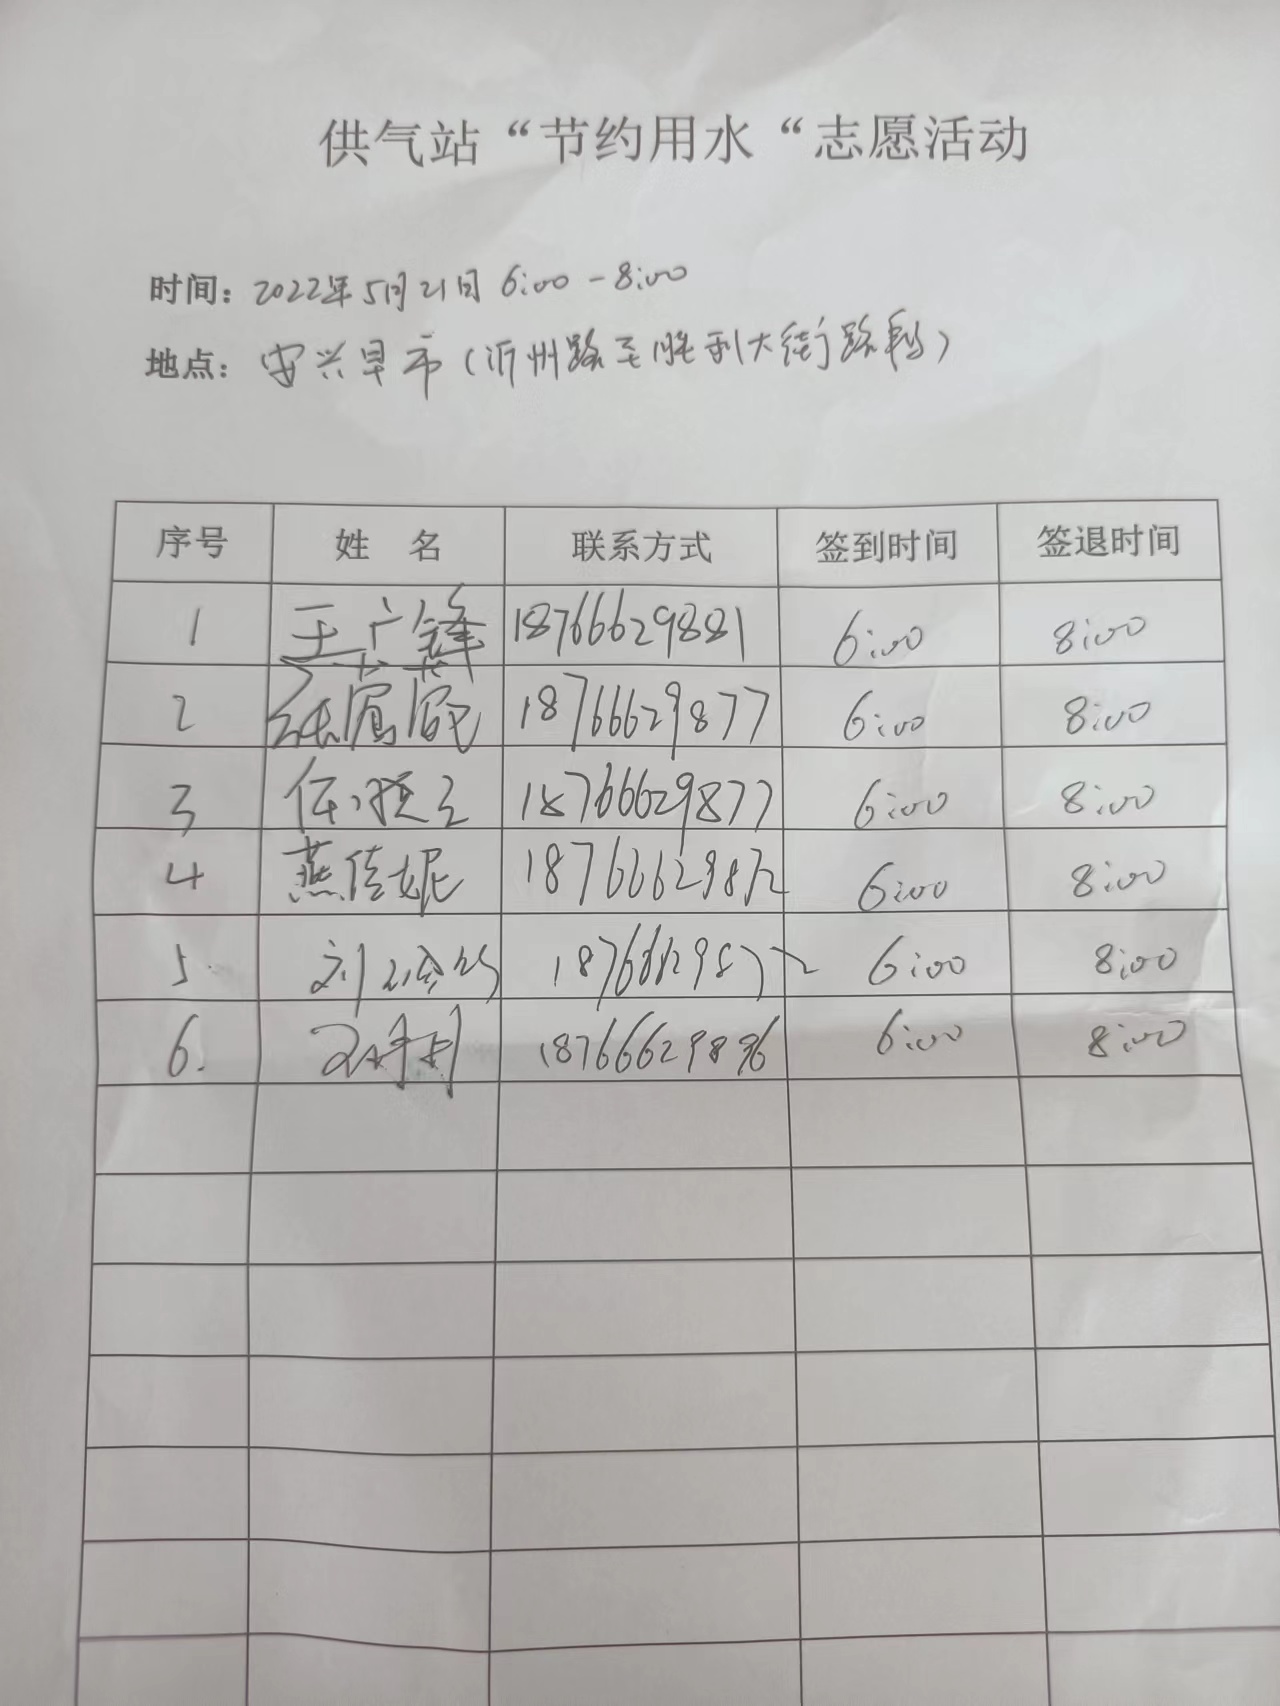 供气站“节约用水“志愿活动
时间：2022年5月21日 6:00-8:00
地点：安兴早市（沂州路至胜利大街路段）
序号 姓 名 联系方式 签到时间 签退时间
1 王广锋 18766629881 6:00 8:00
2 18766629877 6:00 8:00
3 任晓 18766629877 6:00 8:00
4 燕佳妮 18766629872 6:00 8:00
5. 刘 18766629872 6:00 8:00
6. 18766629896 6:00 8:00